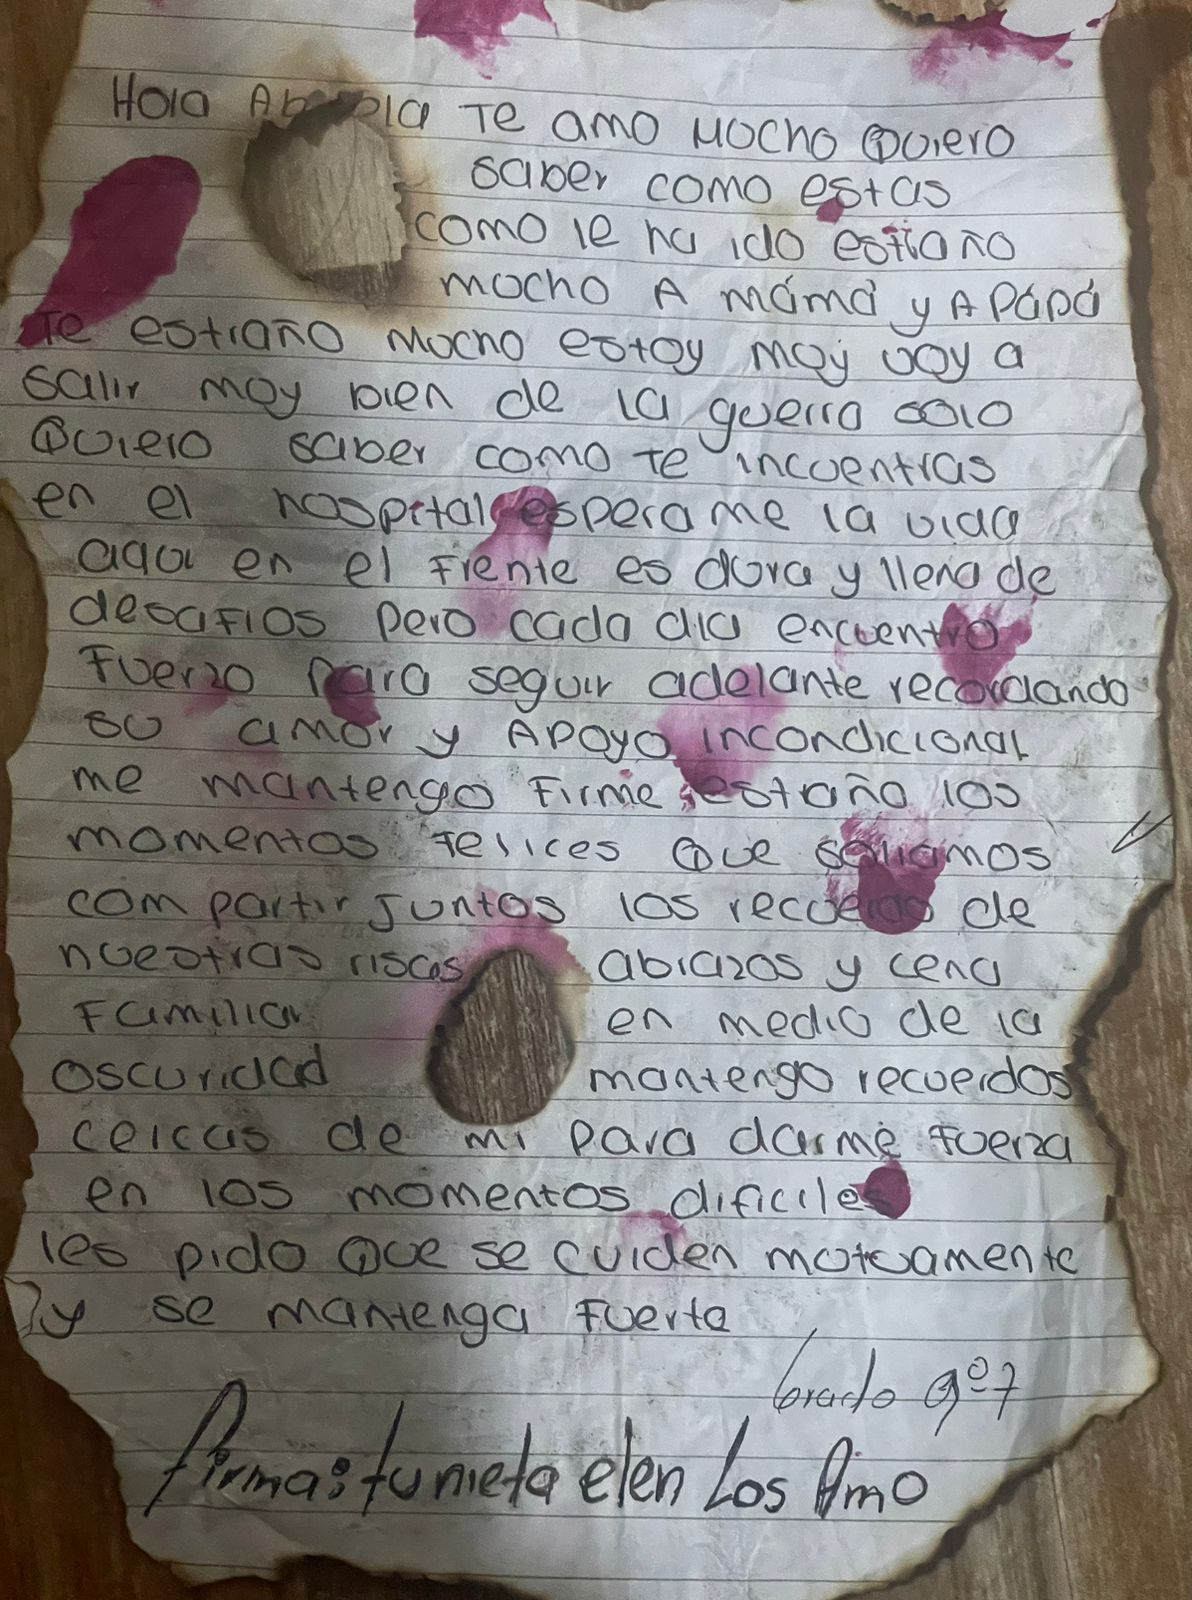 Hola Te amo Mocho Quiero
saber como estas
como le ha ido estraño
mocho A mámá y A Pápá
Te estraño Mocho estoy moy voy a
Salir moy bien de la guerra solo
Quiero saber como te incuentras
en el hospital espera me la vida
aqui en el Frente es dura y llena de
desafios pero cada dia encuentro
Fuerza para seguir adelante recordando
su amor y Apoyo incondicional
me mantengo Firme estraño los
momentos Felices Que soliamos
compartir Juntos los de
nuestras risas abrazos y cena
Familiar en medio de la
oscuridad mantengo recuerdos
cercas de mi para darme Fuerza
en los momentos dificiles
les pido Que se cuiden motuamente
y se mantenga Fuerte
Grado 9º7
Firma: tu nieta elen Los Amo